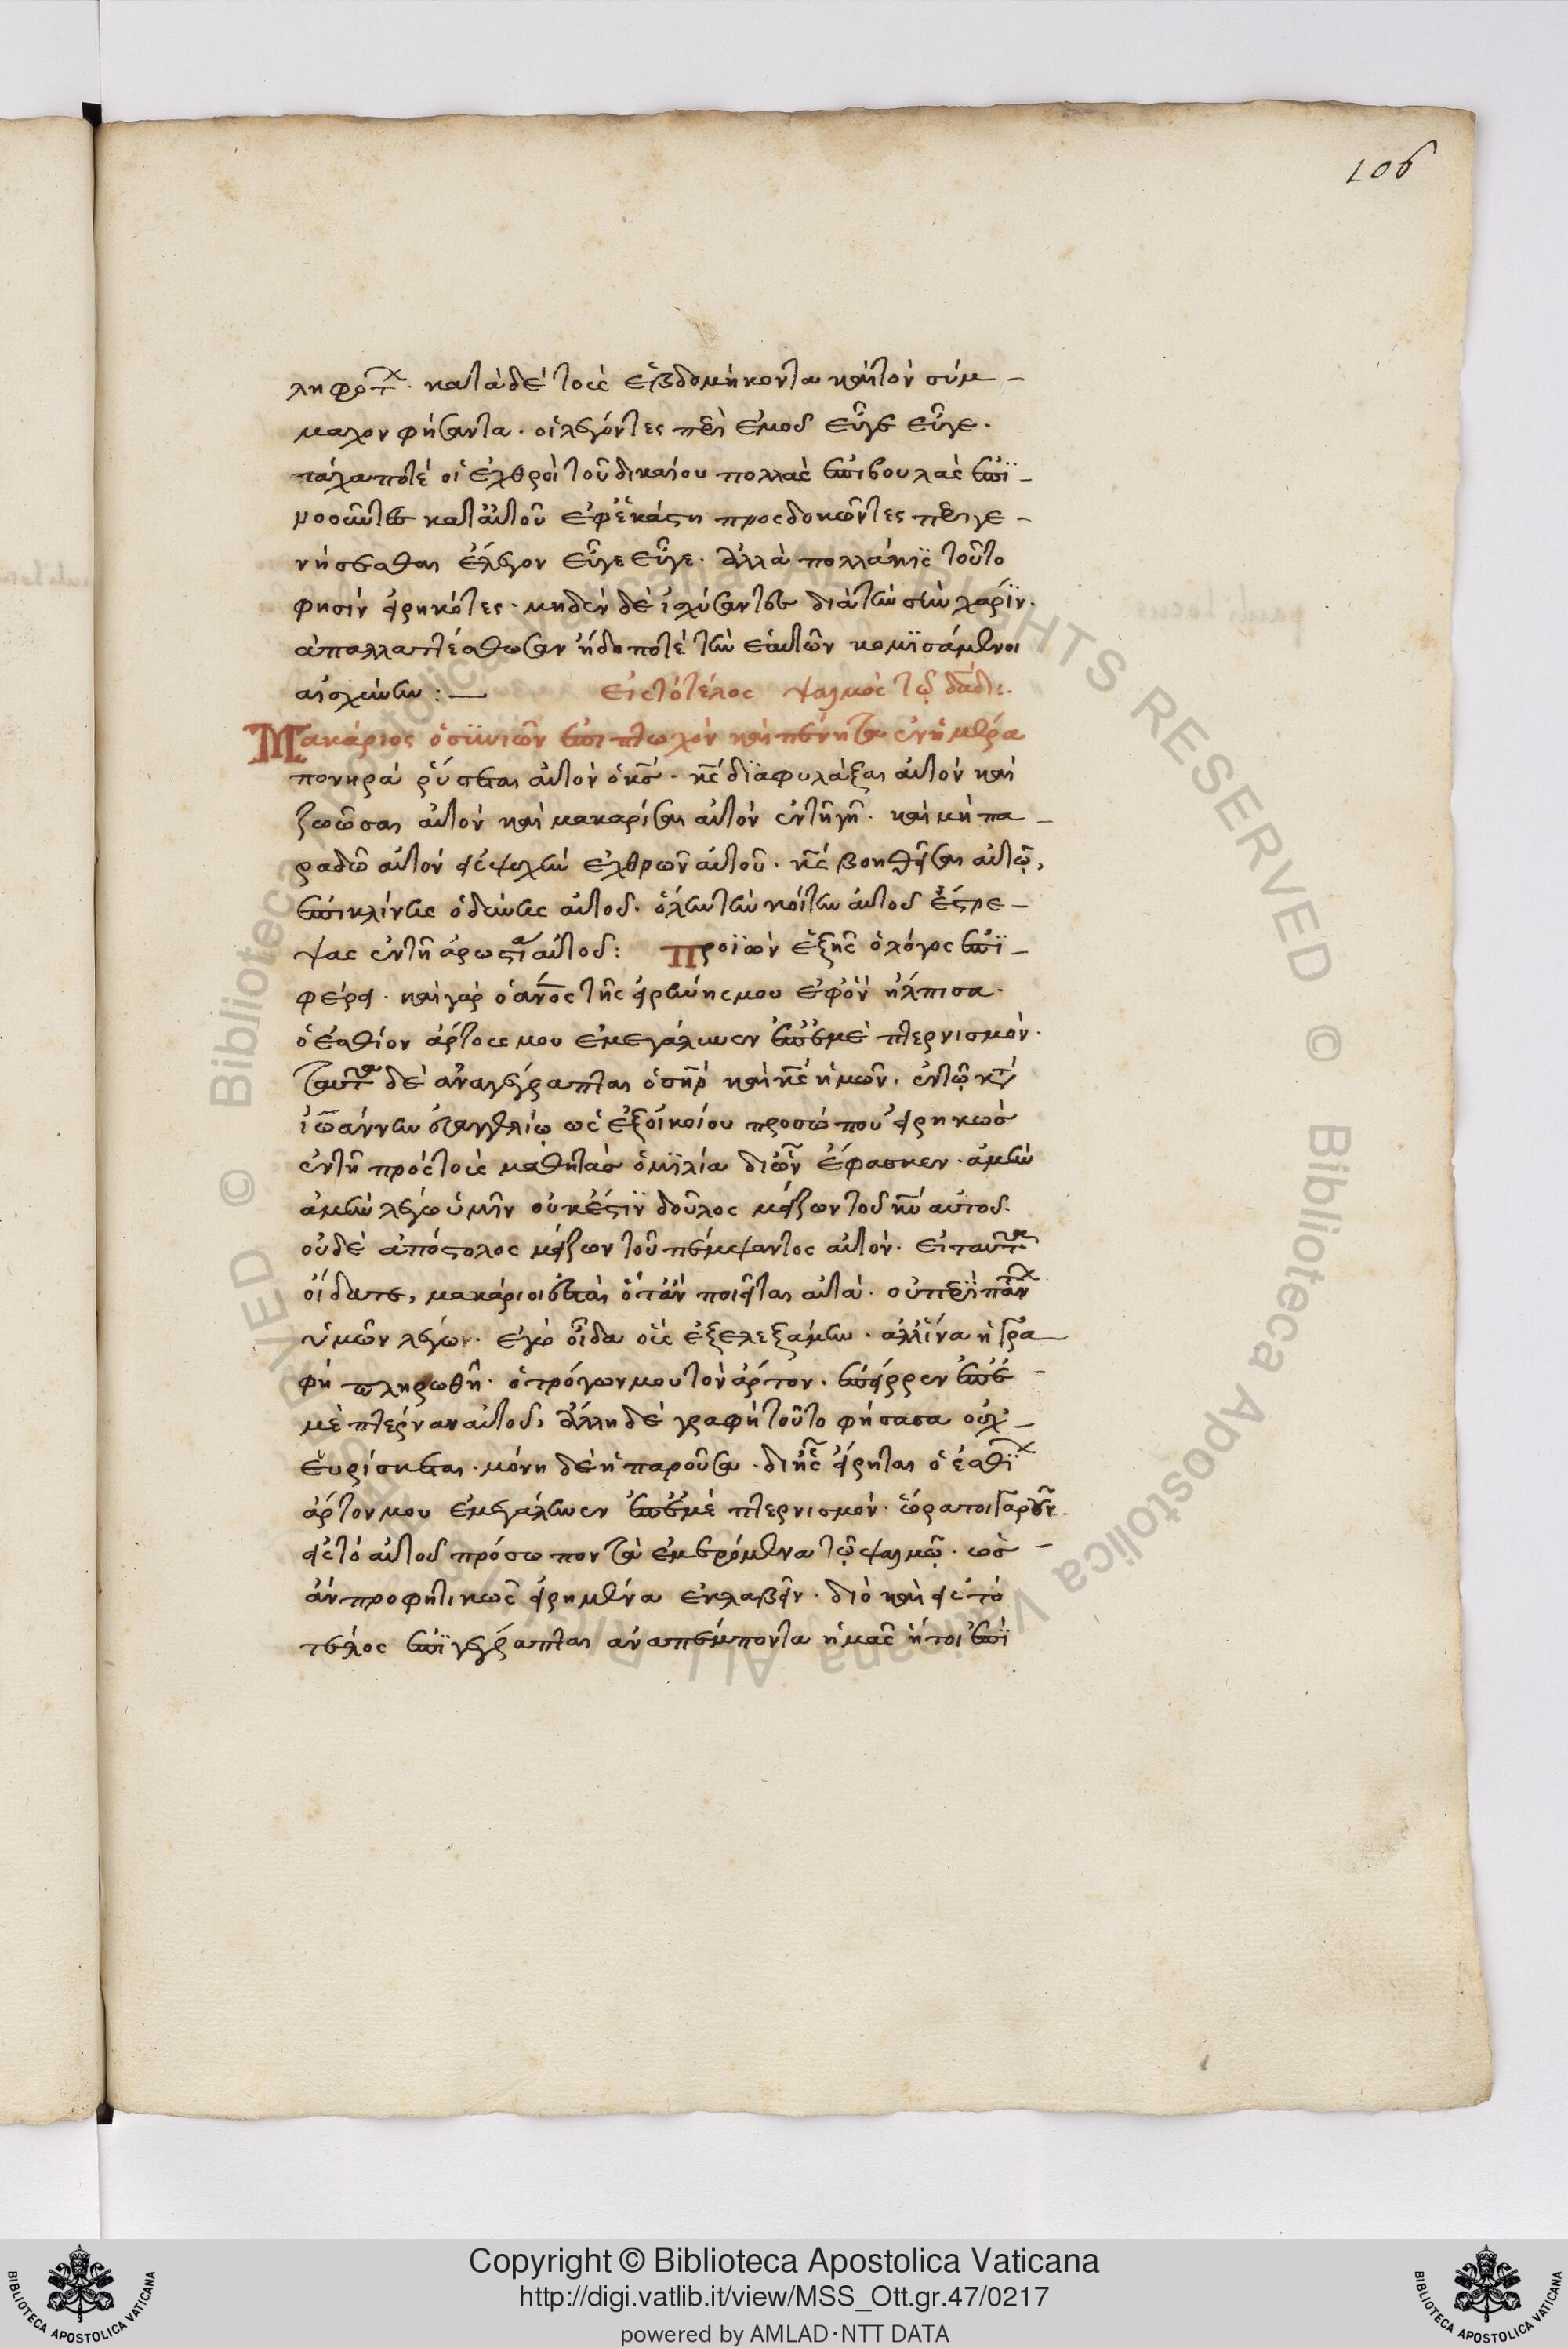 106
ληφότ. κατὰ δὲ τοὺς ἑβδομήκοντα καὶ τὸν σύμ-
μαχον φήσαντα. οἱ λέγοντες περὶ ἐμοῦ εὖγε εὖγε.
πάλαι ποτὲ οἱ ἐχθροὶ τοῦ δικαίου πολλὰς ἐπιβουλὰς ἐπι-
νοοῦντες κατ' αὐτοῦ ἐφ' ἑκάστῃ προσδοκῶντες περιγε-
νήσεσθαι ἔλεγον εὖγε εὖγε. ἀλλὰ πολλάκις τοῦτο
φησὶν εἰρηκότες. μηδὲν δὲ ἰσχύσαντες διὰ τὴν σὴν χάριν.
ἀπαλλαττέσθωσαν ἤδη ποτὲ τὴν ἑαυτῶν κομισάμενοι
αἰσχύνην: — εἰς τὸ τέλος ψαλμὸς τῷ δαδ:.
Μακάριος ὁ συνιῶν ἐπὶ πτωχὸν καὶ πένητα ἐν ἡμέρα
πονηρᾶ ῥύσεται αὐτὸν ὁ κς. κς διαφυλάξαι αὐτὸν καὶ
ζωῶσαι αὐτὸν καὶ μακαρίσαι αὐτὸν ἐν τῇ γῇ. καὶ μὴ πα-
ραδῶ αὐτὸν εἰς ψυχὴν ἐχθρῶν αὐτοῦ. κς βοηθῆσαι αὐτῷ,
ἐπὶ κλίνης ὀδύνης αὐτοῦ. ὅλην τὴν κοίτην αὐτοῦ ἔστρε-
ψας ἐν τῇ ἀρωστία αὐτοῦ: Προϊὼν ἑξῆς ὁ λόγος ἐπι-
φέρει. καὶ γὰρ ὁ ανος τῆς εἰρήνης μου ἐφ' ὃν ἤλπισα.
ὁ ἐσθίον ἄρτους μου ἐμεγάλυνεν ἐπ' ἐμὲ πτερνισμόν.
ταῦτα δὲ ἀναγέγραπται ὁ σηρ καὶ κς ἡμῶν. ἐν τῷ κτ
ἰωάννην εὐαγγελίῳ ὡς ἐξ οἰκείου προσώπου εἰρηκὼς
ἐν τῇ πρὸς τοὺς μαθητὰς ὁμιλία δι' ὧν ἔφασκεν. ἀμὴν
ἀμὴν λέγω ὑμῖν οὐκ ἔστιν δοῦλος μείζων τοῦ κυ αὐτοῦ.
οὐδὲ ἀπόστολος μείζων τοῦ πέμψαντος αὐτόν. εἰ ταῦτα
οἴδατε, μακάριοι ἐσται ὁτὰν ποιεῖται αὐτά. οὐ περὶ πάν
ὑμῶν λέγων. ἐγὼ οἶδα οὓς ἐξελεξάμην. ἀλλ' ἵνα ἡ γρα
φὴ πληρωθῆ. ὁ τρόγων μου τὸν ἄρτον. ἐπῆρρεν ἐπ' ἐ-
μὲ πτέρναν αὐτοῦ, ἄλλη δὲ γραφὴ τοῦτο φήσασα οὐχ-
εὑρίσκεται. μόνη δὲ ἡ παροῦσα. δι' ἧς εἴρηται ὁ ἐσθί
ἄρτον μου ἐμεγάλυνεν ἐπ' ἐμὲ πτερνισμόν. ὥρα τοιγαροῦν
εἰς τὸ αὐτοῦ πρόσωπον τὰ ἐμφερόμενα τῷ ψαλμῷ. ὡς-
ἂν προφητικῶς εἰρημένα ἐκλαβεῖν. διὸ καὶ εἰς τὸ
τέλος ἐπιγέγραπται ἀναπέμποντα ἡμᾶς ἤτοι ἐπὶ
Copyright © Biblioteca Apostolica Vaticana
http://digi.vatlib.it/view/MSS_Ott.gr.47/0217
powered by AMLAD·NTT DATA